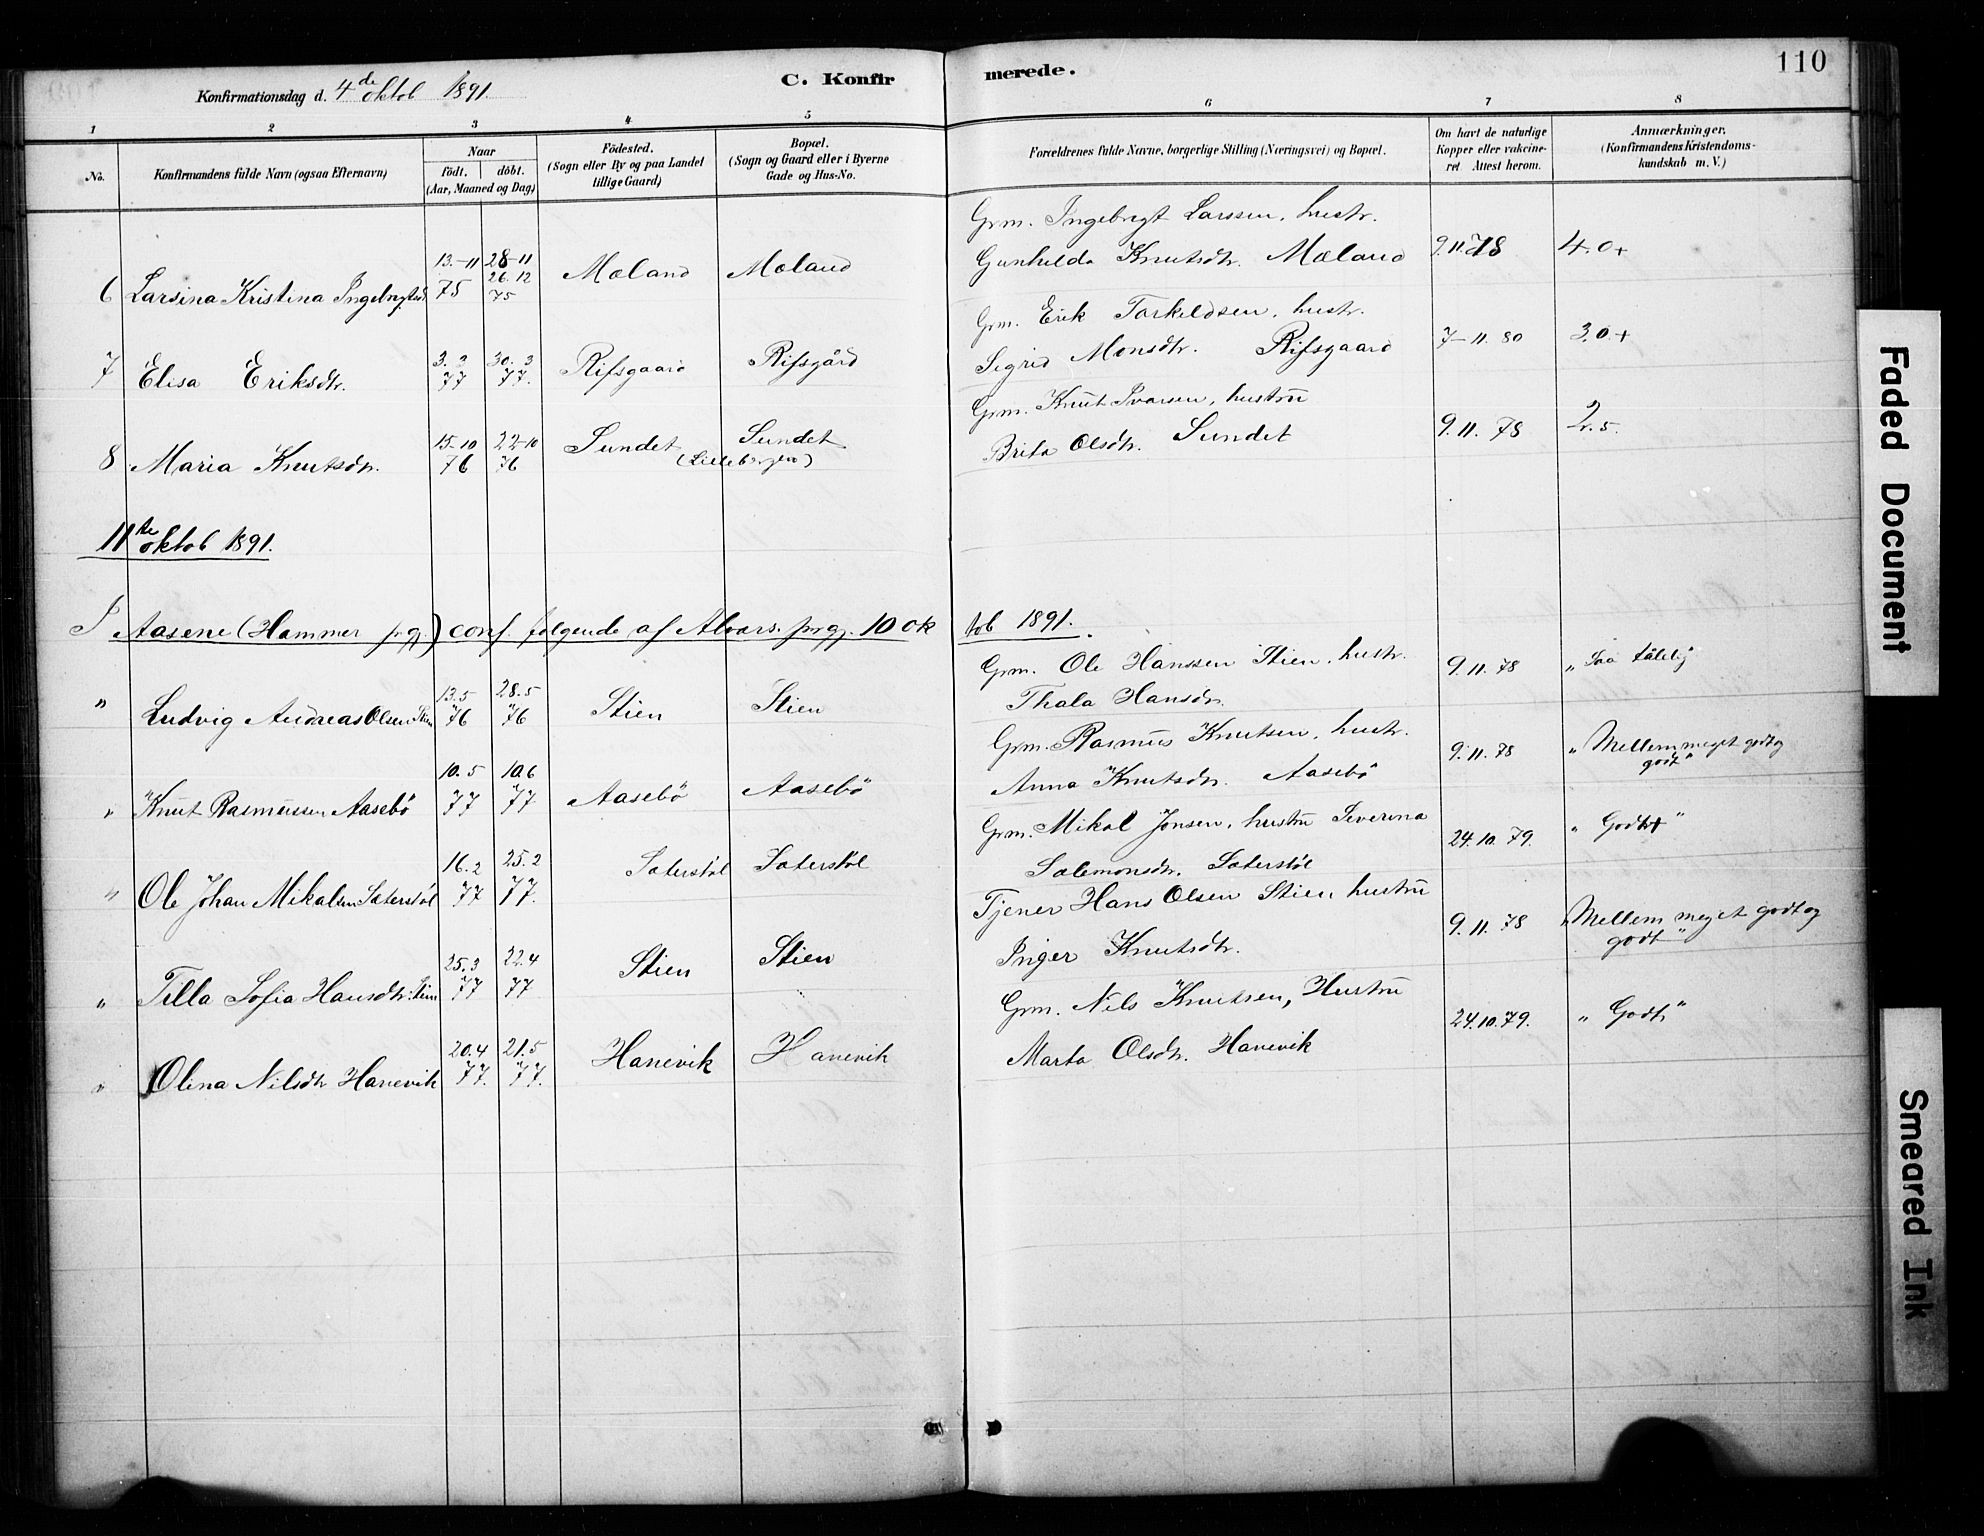 110
Konfirmationsdag d. 4de oktob 1891.
C. Konfirmerede.
1 2 3 4 5 6 7 8
No.
Konfirmandens fulde Navn (ogsaa Efternavn)
Naar
födt. döbt.
(Aar, Maaned og Dag)
Födested.
(Sogn eller By og paa Landet
tillige Gaard)
Bopæl.
(Sogn og Gaard eller i Byerne
Gade og Hus-No.
Forældrenes fulde Navne, borgerlige Stilling (Næringsvei) og Bopæl.
Om havt de naturlige
Kopper eller vakcine-
ret Attest herom.
Anmærkninger.
(Konfirmandens Kristendoms-
kundskab m. V.)
6 Larsina Kristina Ingebrigtsd. 13.-11 75 28-11 26.12 75 Mæland Mæland Grm. Ingebrigt Larssen, hustr.
Gunhilda Knutsdtr. Mæland 9.11.78 4.0+
7 Elisa Eriksdtr. 3.3 77 30.3 77. Rifsgaard Rifsgård Grm. Erik Torkeldsen, hustr.
Sigrid Monsdtr. Rifsgaard 7-11.80 3.0+
8 Maria Knutsdtr. 15-10 76 22-10 76 Sundet Sundet (Lillebergen) Grm. Knut Ivarsen, hustru
Brita Olsdtr. Sundet 9.11.78 2.5.
11te oktob 1891.
I Aasene (Hammer prgj.) conf. følgende af Alvers. prgj. 10 oktob 1891.
" Ludvig Andreas Olsen Stien 13.5 76 28.5 76 Stien Stien Grm. Ole Hanssen Stien, hustr.
Thala Hansdtr. 9.11.78 "Saa tålelig
" Knut Rasmussen Aasebö 10.5 77 10.6 77 Aasebö Aasebö Grm. Rasmus Knutsen, hustr.
Anna Knutsdtr. Aasebö 9.11.78 "Mellem meget godt og
godt"
" Ole Johan Mikalsen Sæterstöl 16.2 77 25.2 77. Sæterstöl Sæterstöl Grm. Mikal Jonsen, hustru Severina
Salemonsdtr. Sæterstöl 24.10.79. "Godt+"
" Tilla Sofia Hansdtr. Stien 25.3 77 22.4 77 Stien Stien Tjener Hans Olsen Stien hustru
Inger Knutsdtr. 9.11.78 "Mellem meget godt og
godt"
" Olina Nilsdtr Hanevik 20.4 77. 21.5 77. Hanevik Hanevik Grm. Nils Knutsen, Hustru
Marta Olsdtr. Hanevik 24.10.79. "Godt"
Faded Document
Smeared Ink